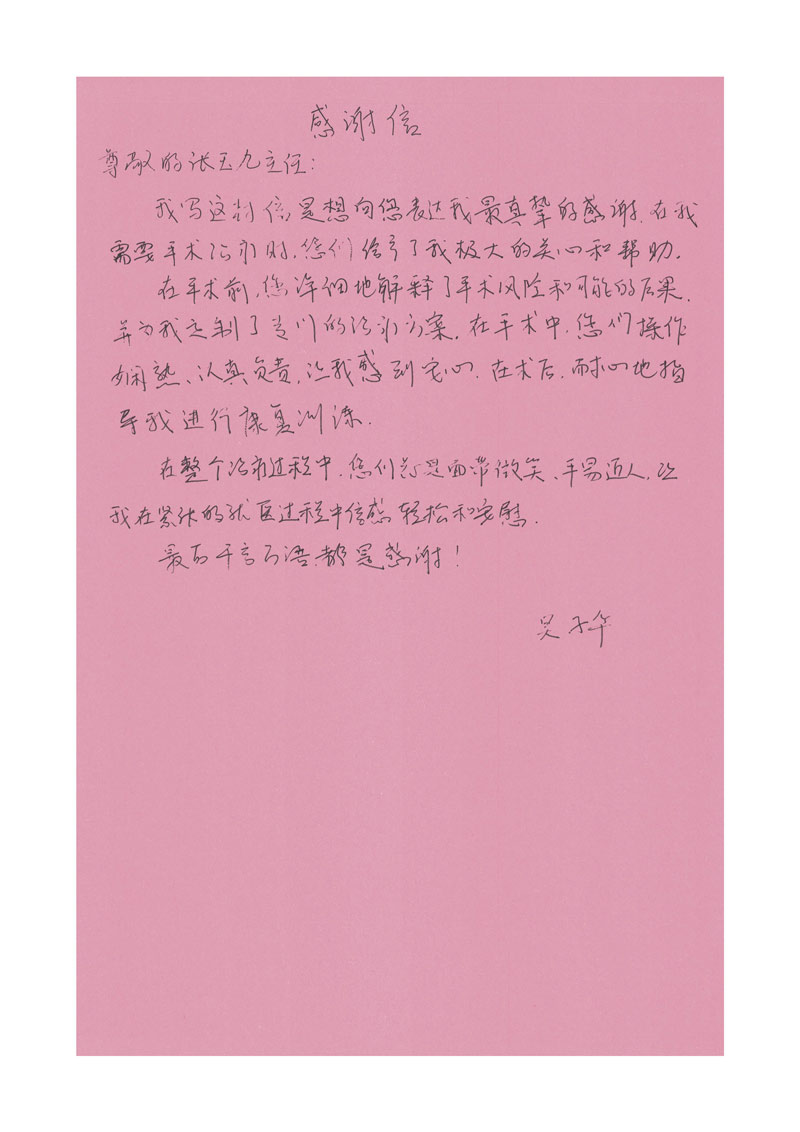 感谢信
尊敬的张玉九主任:
我写这封信,是想向您表达我最真挚的感谢.在我
需要手术治疗时,您们给予了我极大的关心和帮助.
在手术前,您详细地解释了手术风险和可能的后果,
并为我定制了专门的治疗方案.在手术中,您们操作
娴熟、认真负责,让我感到安心.在术后,耐心地指
导我进行康复训练.
在整个治疗过程中,您们总是面带微笑、平易近人,让
我在紧张的就医过程中倍感轻松和安慰.
最后千言万语都是感谢!
吴